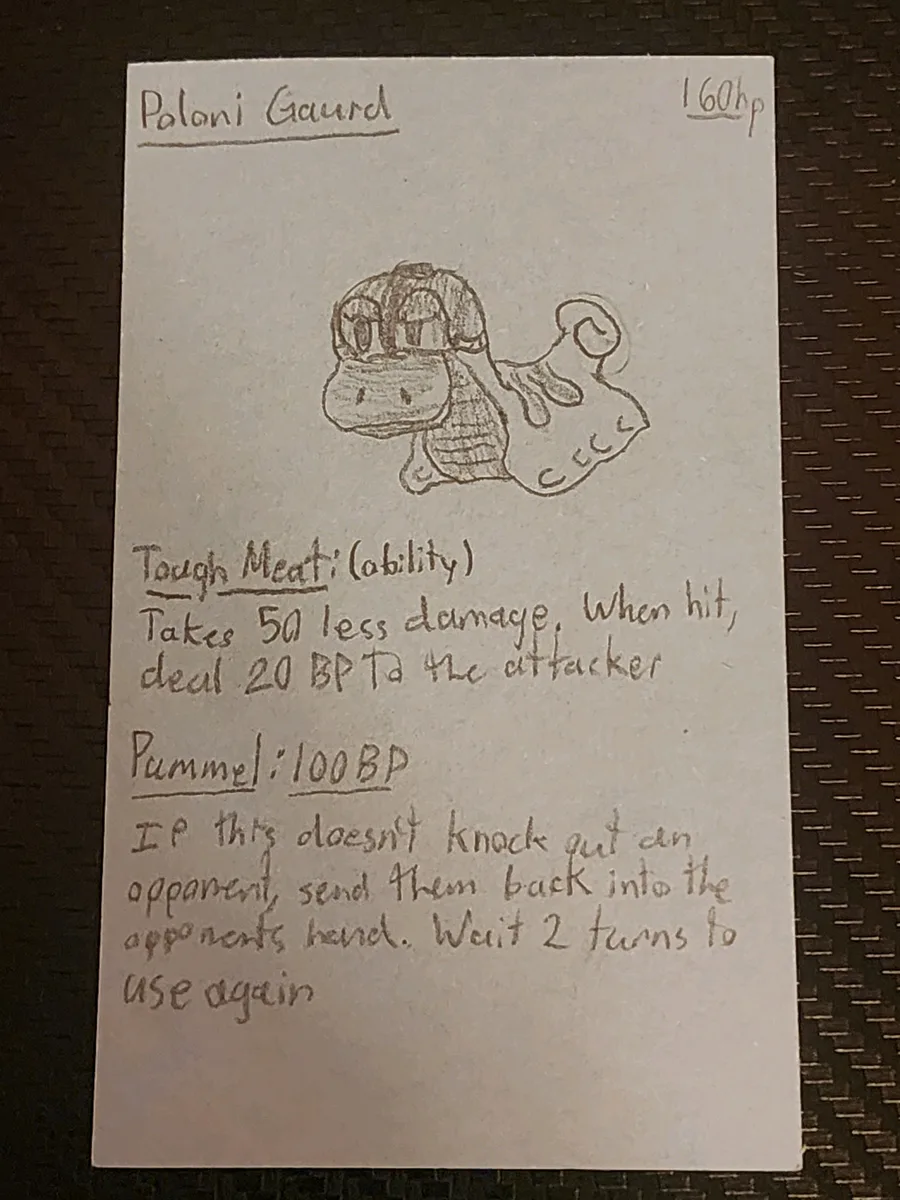 Poloni Gaurd
160hp
Tough Meat: (ability)
Takes 50 less damage. When hit,
deal 20 BP To the attacker
Pummel: 100BP
If this doesn't knock out an
opponent, send them back into the
opponents hand. Wait 2 turns to
use again